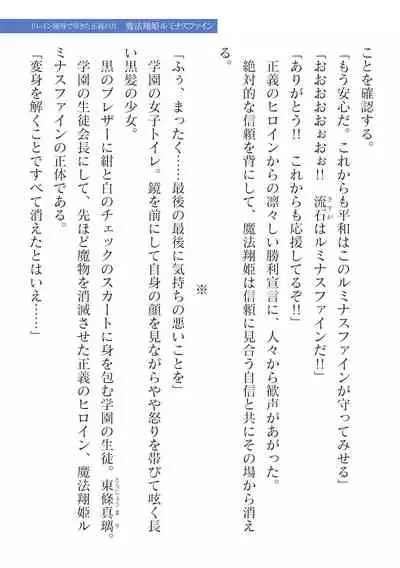 ドレイン凌辱で堕きた正義の刃　魔法翔姫ルミナスファイン
ことを確認する。
「もう安心だ。これからも平和はこのルミナスファインが守ってみせる」
「おおおおおぉおぉ!!　流石はルミナスファインだ!!」
「ありがとう!!　これからも応援してるぞ!!」
正義のヒロインからの凛々しい勝利宣言に、人々から歓声があがった。
絶対的な信頼を背にして、魔法翔姫は信頼に見合う自信と共にその場から消え
る。
※
「ふぅ、まったく……最後の最後に気持ちの悪いことを」
学園の女子トイレ。鏡を前にして自身の顔を見ながらやや怒りを帯びて呟く長
い黒髪の少女。
黒のブレザーに紺と白のチェックのスカートに身を包む学園の生徒。東條真璃。
学園の生徒会長にして、先ほど魔物を消滅させた正義のヒロイン、魔法翔姫ル
ミナスファインの正体である。
「変身を解くことですべて消えたとはいえ……」